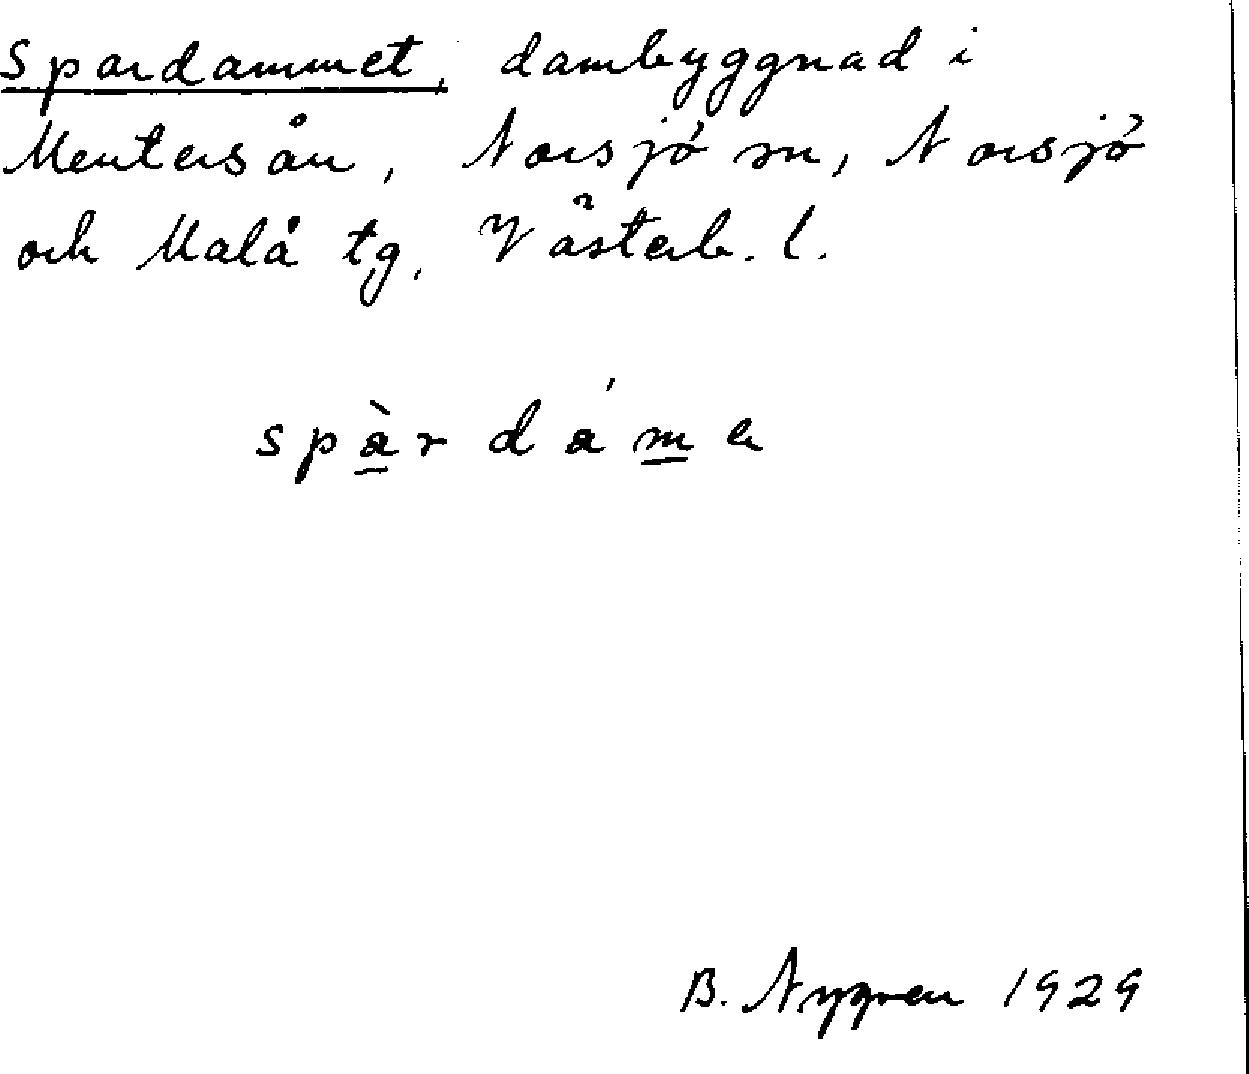 Spardammet, dambyggnad i
Mentersån, Norsjö sn, Norsjö
och Malå tg, Västerb. l.
spàrdáme
B. Nygren 1929